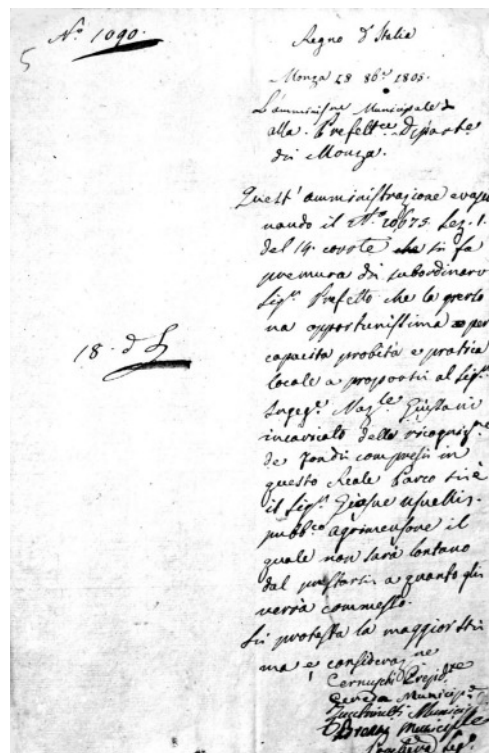 Nº 1090.
5
Regno d'Italia
Monza 18 8bre 1805.
L'amministne Municipale di
alla Prefettce
di Monza.
Quest'amministrazione evaqu
nando il Nº 10675. Sez. 1.
del 14. corrte che si fa
premura di subordinare
Sigr Prefetto che la perso
na opportunissima per
capacita probità e pratica
locale a proporsi al Sigr
Ingegre Nazle Giussani
incaricato della ricogniz.ne
de fondi compresi in
questo Reale Parco sia
il Sigr Giosue
pubbco agrimensore il
quale non sarà lontano
dal prestarsi a quanto gli
verrà commesso.
Si protesta la maggior sti
ma e consideraz.ne
Cernuschi Presid.te
Municip
Municip
Municiple
18. d